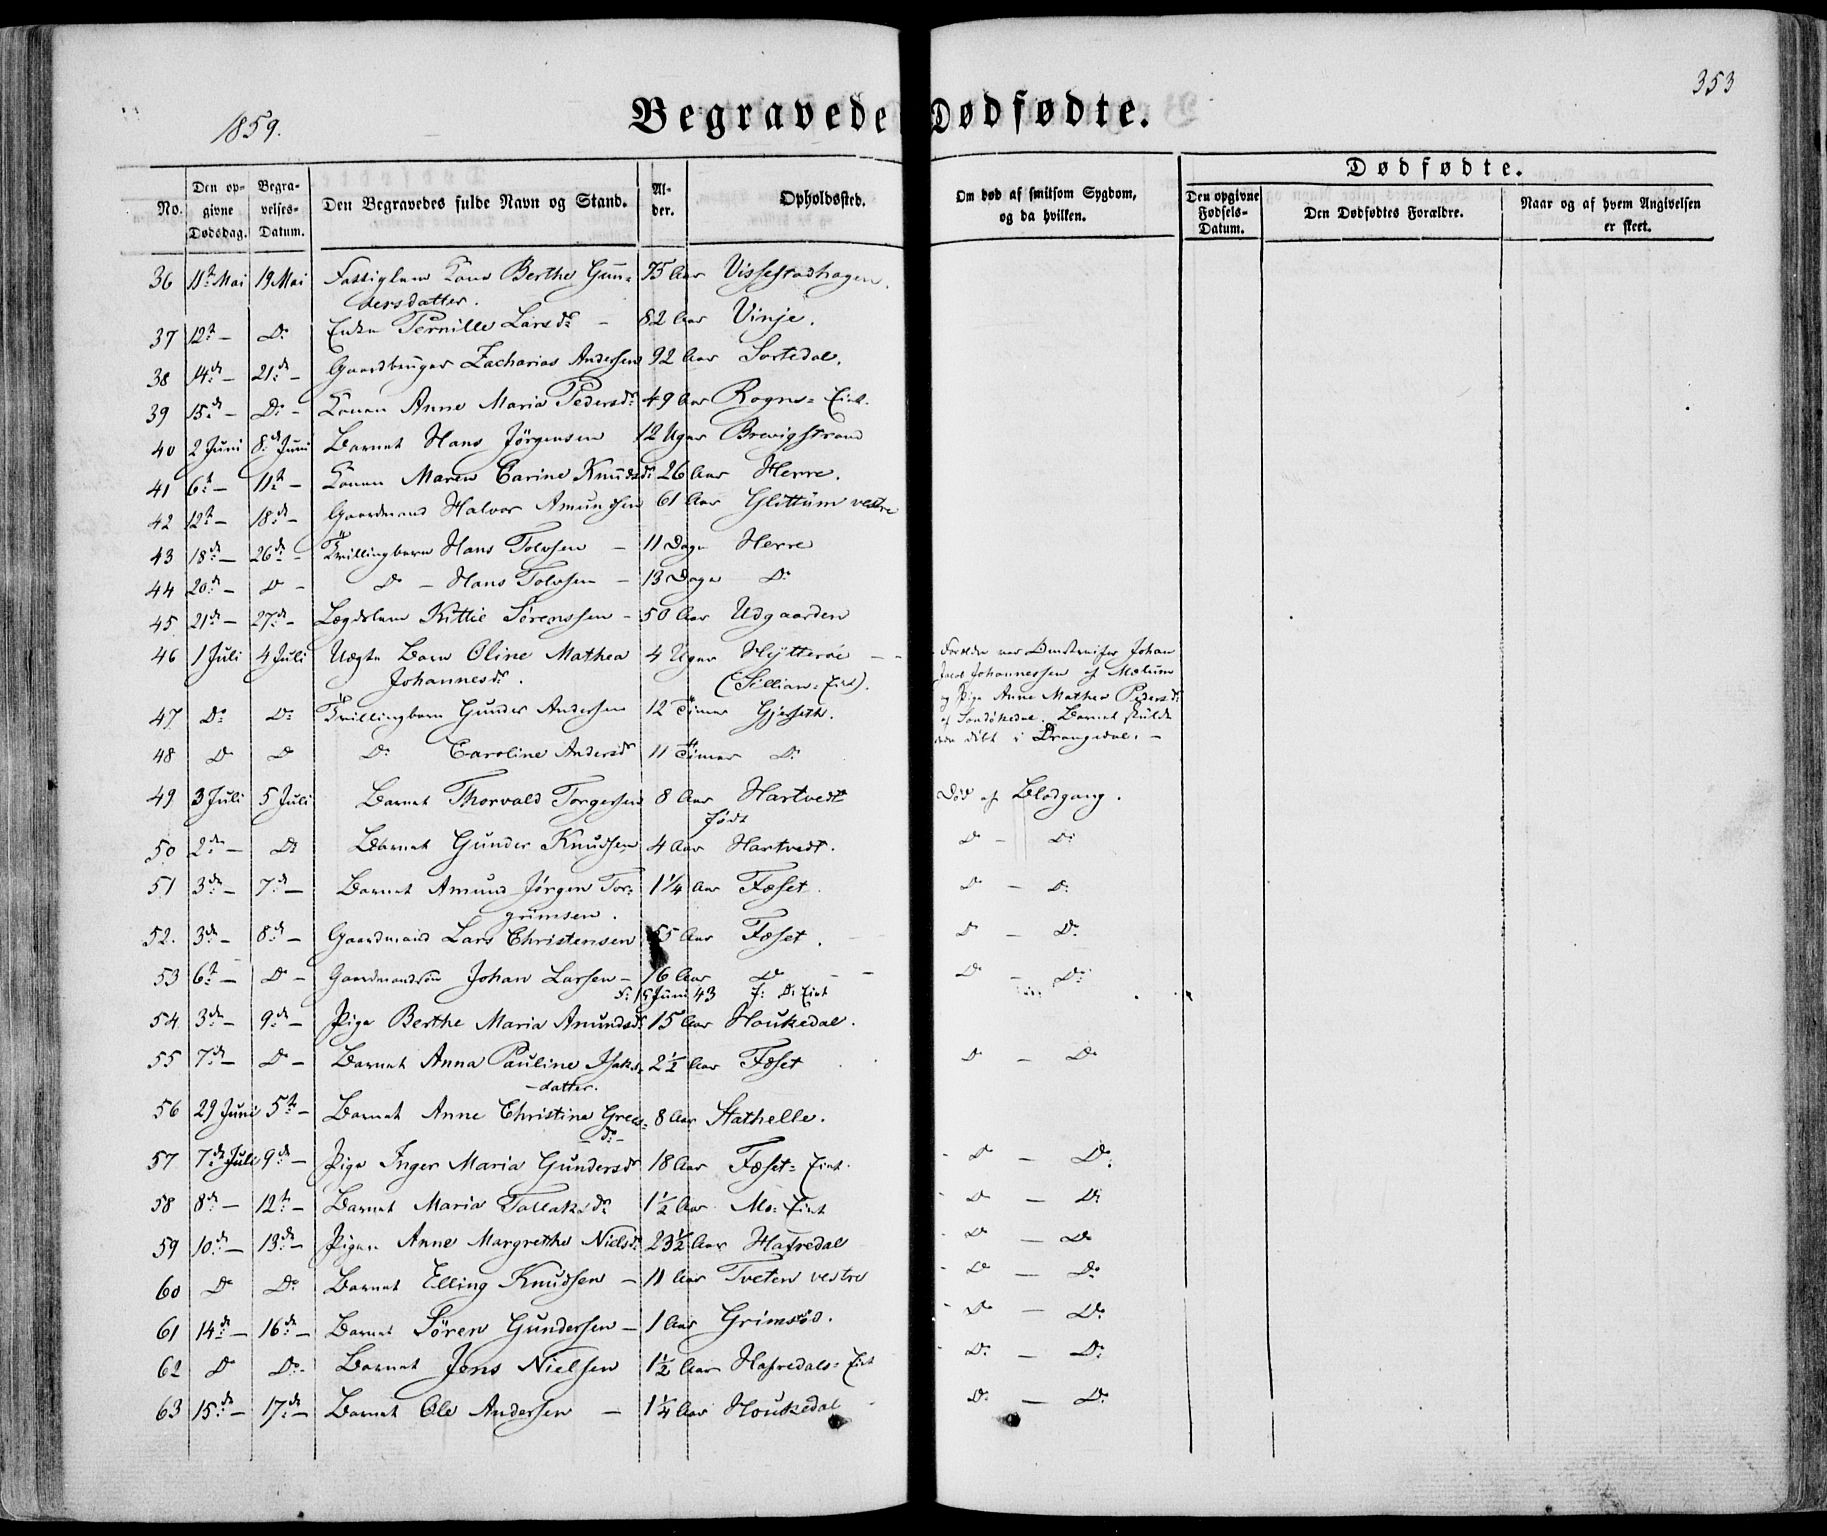 353
1859.
Begravede Dødfødte.
Dødfødte.
No. Den opgivne Dødsdag. Begravelses-Datum. Den Begravedes fulde Navn og Stand. Alder. Opholdssted. Om død af smitsom Sygdom, og da hvilken. Den opgivne Fødsels-Datum. Den Dødfødtes Forældre. Naar og af hvem Angivelsen er skeet.
36 11te Mai 19 Mai Fattiglem Kone Berthe Gun-
dersdatter. 75 Aar Vissestadhagen.
37 12te – Do Enke Pernille Larsdr – 82 Aar Vinje.
38 14de – 21de – Gaardbruger Zacharias Andersen 92 Aar Sortedal.
39 15de – Do – Konen Anne Maria Pedersdr 49 Aar Rogns= Eiet.
40 2 Juni 8de Juni Barnet Hans Jörgensen 12 Uger Brevigstrand
41 6te – 11te – Konen Maren Carine Knudsdr 26 Aar Herre.
42 12te – 18de – Gaardmand Halvor Amundsen 61 Aar Glittum vestre
43 18de – 26de – Tvillingbarn Hans Tolvsen – 11 Dage Herre
44 20de – D – Do – Hans Tolvsen – 13 Dage Do
45 21de – 27de – Lægdslem Kittil Sörenssen – 50 Aar Udgaarden
46 1 Juli 4 Juli Uægte Barn Oline Mathea
Johannesdr. 4 Uger Hytteröe – –
(Sillian= Eiet).
Forældre var Omstreifer Johan
Jacob Johannessen af Mælum
og Pige Anne Mathea Pedersdr
af Sandökedal. Barnet skulde
være döbt i Drangedal. –
47 Do Do Tvillingbarn Gunder Andersen 12 Timer Gjerseth.
48 Do Do Do Caroline Andersdr 11 Timer Do
49 3 Juli 5 Juli Barnet Thorvald Torgersen 8 Aar Hartvedt Död af Blodgang.
50 2de – Do Barnet Gunder Knudsen 4 Aar födt Hartvedt. D – Do
51 3de – 7de – Barnet Amund Jörgen Tor-
grimsen. 1 1/4 Aar Fæset. D – D:
52. 3de – 8de – Gaardmand Lars Christensen 55 Aar Fæset. D – Do
53 6te – D – Gaardmandssön Johan Larsen – 16 Aar Do – – Do – Do
54 3de – 9de – Pige Berthe Maria Amundsdr 15 Aar Houkedal.
55 7de – D – Barnet Anna Pauline Isaks-
datter. 2 1/2 Aar Fæset D – Do
56 29 Juni 5te – Barnet Anne Christine Grees=
dr– 8 Aar Stathelle.
57 7de Juli 9de – Pige Inger Maria Gundersdr 18 Aar Fæset= Eiet. D – Do
58 8de – 12te – Barnet Maria Tollaksdr 1 1/2 Aar Mo= Eiet D – D:
59 10de – 13de – Pigen Anne Margrethe Nielsdr 23 1/2 Aar Hafredal D – Do
60 Do Do Barnet Elling Knudsen – 11 Aar Tveten vestre D – Do
61 14de – 16de – Barnet Sören Gundersen – 1 Aar Grimsöd. Do – Do
62 D Do – Barnet Jens Nielsen 1 1/2 Aar Hafredals= Eiet Do – Do
63 15de – 17de – Barnet Ole Andersen – 1 1/4 Aar Houkedal Do – Do